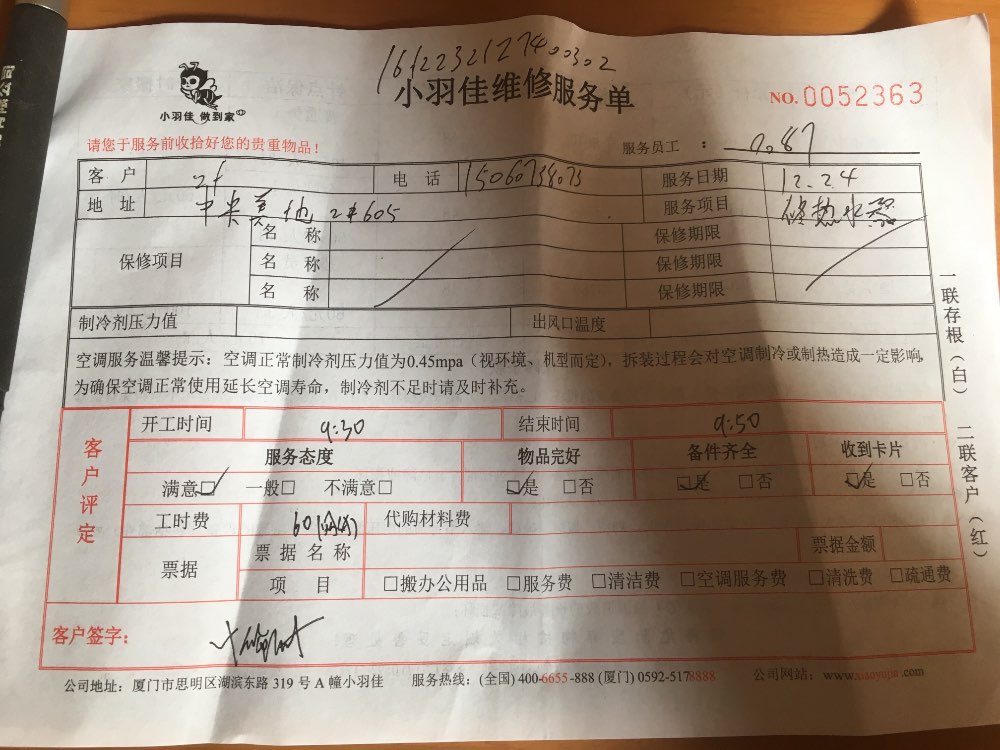 1612232127400302
小羽佳维修服务单
小羽佳 做到家
NO. 0052363
请您于服务前收拾好您的贵重物品！
服务员工 ：
客 户 电 话 服务日期 12.24
地 址 中央美地 2#605 服务项目 修热水器
保修项目 名 称 保修期限
名 称 保修期限
名 称 保修期限
制冷剂压力值 出风口温度
空调服务温馨提示：空调正常制冷剂压力值为0.45mpa（视环境、机型而定），拆装过程会对空调制冷或制热造成一定影响，
为确保空调正常使用延长空调寿命，制冷剂不足时请及时补充。
一联存根（白） 二联客户（红）
客户评定
开工时间 9:30 结束时间 9:50
服务态度 物品完好 备件齐全 收到卡片
满意☑ 一般□ 不满意□ ☑是 □否 ☑是 □否 ☑是 □否
工时费 60 代购材料费
票据 票据名称 票据金额
项 目 □搬办公用品 □服务费 □清洁费 □空调服务费 □清洗费 □疏通费
客户签字：
公司地址：厦门市思明区湖滨东路 319 号 A 幢小羽佳 服务热线：(全国) 400-6655-888 (厦门) 0592-5178888 公司网站：www.xiaoyujia.com